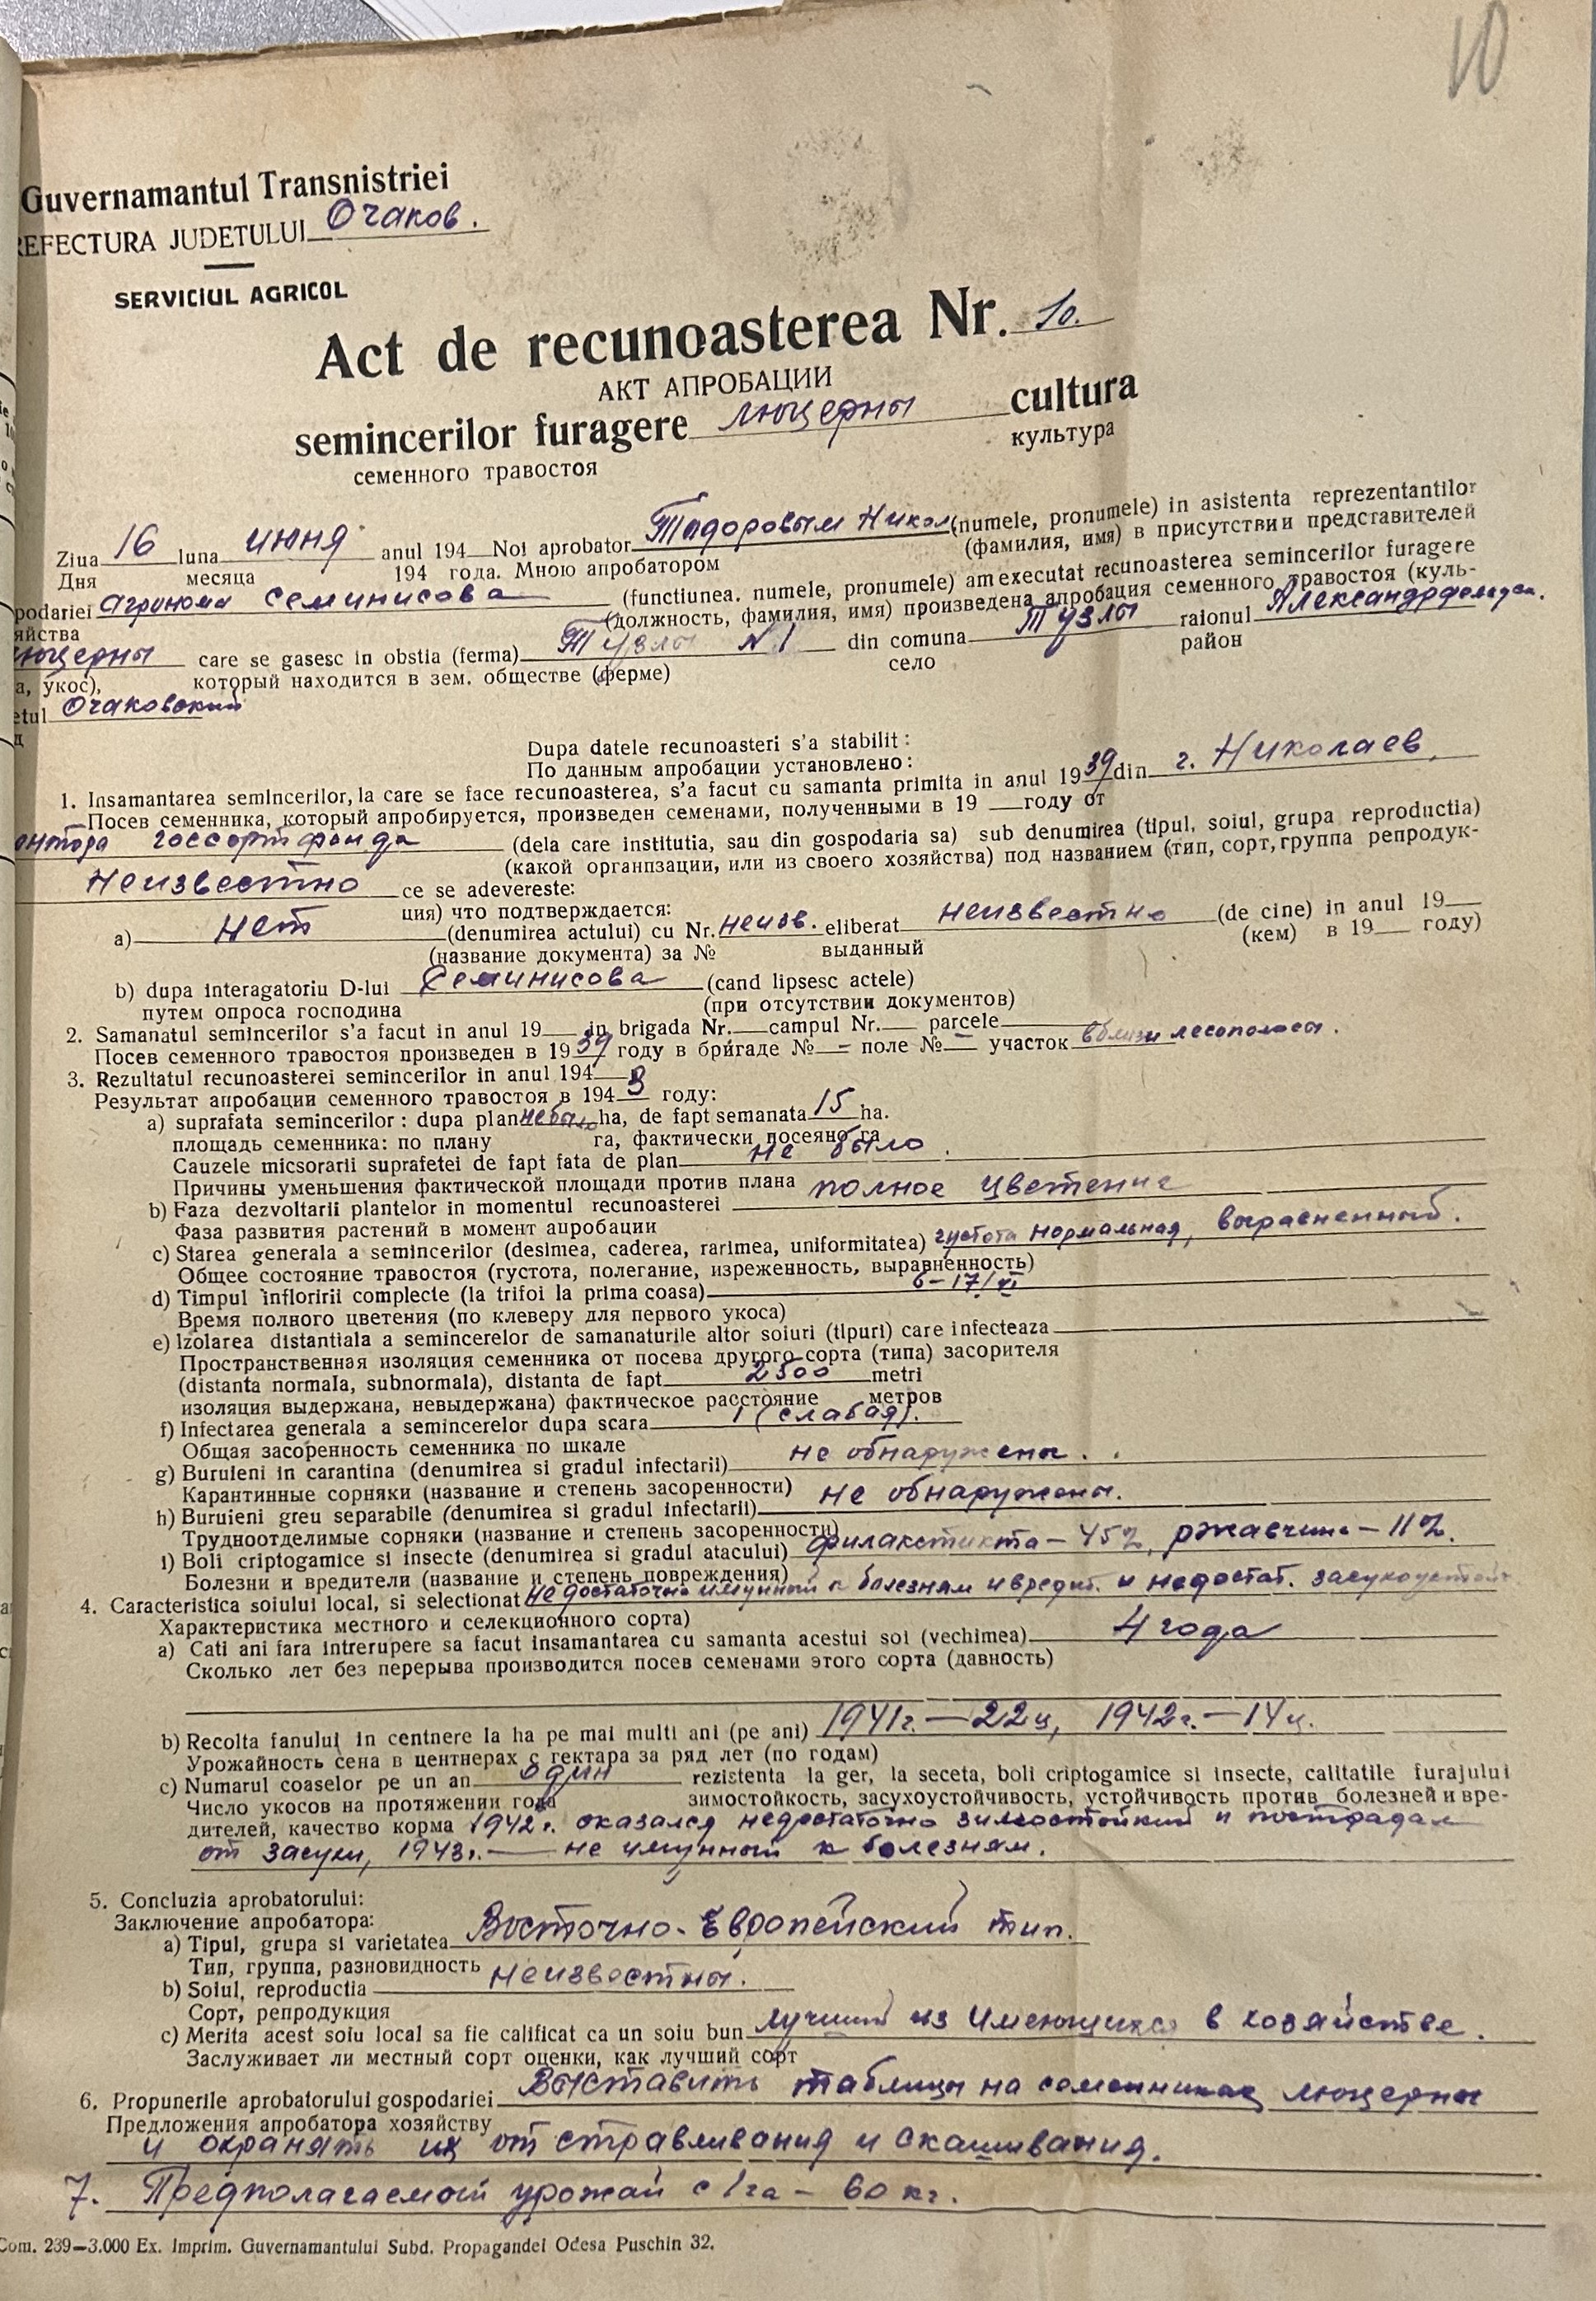 10
Guvernamantul Transnistriei
REFECTURA JUDETULUI Очаков.
SERVICIUL AGRICOL
Act de recunoasterea Nr. 10.
АКТ АПРОБАЦИИ
semincerilor furagere люцерны cultura
семенного травостоя культура
Ziua 16 luna июня anul 194 Noi aprobator Тодоровым Никол (numele, pronumele) in asistenta reprezentantilor
Дня месяца 194 года. Мною апробатором (фамилия, имя) в присутствии представителей
podariei агронома Семинисова (functiunea. numele, pronumele) am executat recunoasterea semincerilor furagere
яйства (должность, фамилия, имя) произведена апробация семенного травостоя (куль-
люцерны care se gasesc in obstia (ferma) Тузлы N 1 din comuna Тузлы raionul
а, укос), который находится в зем. обществе (ферме) село район
etul Очаковский
Dupa datele recunoasteri s'a stabilit:
По данным апробации установлено:
1. Insamantarea semincerilor, la care se face recunoasterea, s'a facut cu samanta primita in anul 1939 din г. Николаев,
Посев семенника, который апробируется, произведен семенами, полученными в 19 году от
госсортфонда (dela care institutia, sau din gospodaria sa) sub denumirea (tipul, soiul, grupa reproductia)
(какой органпзации, или из своего хозяйства) под названием (тип, сорт, группа репродук-
Неизвестно ce se adevereste:
ция) что подтверждается:
a) нет (denumirea actului) cu Nr. неизв. eliberat неизвестно (de cine) in anul 19
(название документа) за № выданный (кем) в 19 году)
b) dupa interagatoriu D-lui Семинисова (cand lipsesc actele)
путем опроса господина (при отсутствии документов)
2. Samanatul semincerilor s'a facut in anul 19 in brigada Nr. campul Nr. parcele
Посев семенного травостоя произведен в 1939 году в бригаде № — поле № — участок вблизи лесополосы.
3. Rezultatul recunoasterei semincerilor in anul 194 3
Результат апробации семенного травостоя в 194 3 году:
a) suprafata semincerilor: dupa plan не было ha, de fapt semanata 15 ha.
площадь семенника: по плану га, фактически посеяно га
Cauzele micsorarii suprafetei de fapt fata de plan не было.
Причины уменьшения фактической площади против плана
b) Faza dezvoltarii plantelor in momentul recunoasterei полное цветение
Фаза развития растений в момент апробации
c) Starea generala a semincerilor (desimea, caderea, rarimea, uniformitatea) густота нормальная, выравненный.
Общее состояние травостоя (густота, полегание, изреженность, выравненность)
d) Timpul infloririi complecte (la trifoi la prima coasa) 6-17/VI
Время полного цветения (по клеверу для первого укоса)
e) Izolarea distantiala a semincerelor de samanaturile altor soiuri (tipuri) care infecteaza
Пространственная изоляция семенника от посева другого сорта (типа) засорителя
(distanta normala, subnormala), distanta de fapt 2500 metri
изоляция выдержана, невыдержана) фактическое расстояние метров
f) Infectarea generala a semincerelor dupa scara 1 (слабая).
Общая засоренность семенника по шкале
g) Buruieni in carantina (denumirea si gradul infectarii) не обнаружены.
Карантинные сорняки (название и степень засоренности)
h) Buruieni greu separabile (denumirea si gradul infectarii) не обнаружены.
Трудноотделимые сорняки (название и степень засоренности)
i) Boli criptogamice si insecte (denumirea si gradul atacului) – 45%, ржавчина – 11%.
Болезни и вредители (название и степень повреждения)
4. Caracteristica soiului local, si selectionat недостаточно имунный к болезням и вредит. и недостат. засухоустой
Характеристика местного и селекционного сорта)
a) Cati ani fara intrerupere sa facut insamantarea cu samanta acestui soi (vechimea) 4 года
Сколько лет без перерыва производится посев семенами этого сорта (давность)
b) Recolta fanului in centnere la ha pe mai multi ani (pe ani) 1941г.—22ц, 1942г.—14ц.
Урожайность сена в центнерах с гектара за ряд лет (по годам)
c) Numarul coaselor pe un an один rezistenta la ger, la seceta, boli criptogamice si insecte, calitatile furajului
Число укосов на протяжении года зимостойкость, засухоустойчивость, устойчивость против болезней и вре-
дителей, качество корма 1942г. оказался недостаточно зимостойкий и пострадал
от засухи, 1943г. — не имунный к болезням.
5. Concluzia aprobatorului:
Заключение апробатора:
a) Tipul, grupa si varietatea Восточно-Европейский тип.
Тип, группа, разновидность
b) Soiul, reproductia неизвестны.
Сорт, репродукция
c) Merita acest soiu local sa fie calificat ca un soiu bun лучший из имеющихся в хозяйстве.
Заслуживает ли местный сорт оценки, как лучший сорт
6. Propunerile aprobatorului gospodariei Выставить таблицы на семенниках люцерны
Предложения апробатора хозяйству
и охранять их от стравливания и скашивания.
7. Предполагаемой урожай с 1га – 60 кг.
Com. 239—3.000 Ex. Imprim. Guvernamantului Subd. Propagandei Odesa Puschin 32.